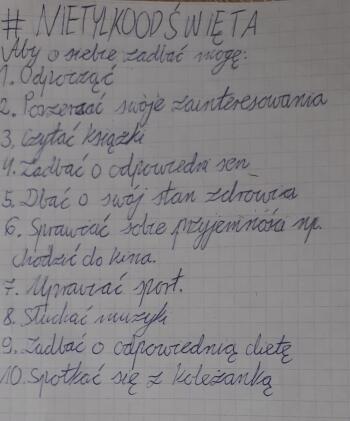 # NIETYLKOODŚWIĘTA
Aby o siebie zadbać mogę:
1. Odpocząć
2. Poszerzać swoje zainteresowania
3. Czytać książki
4. Zadbać o odpowiedni sen
5. Dbać o swój stan zdrowia
6. Sprawiać sobie przyjemności np.
chodzić do kina.
7. Uprawiać sport.
8. Słuchać muzyki
9. Zadbać o odpowiednią dietę
10. Spotkać się z koleżanką